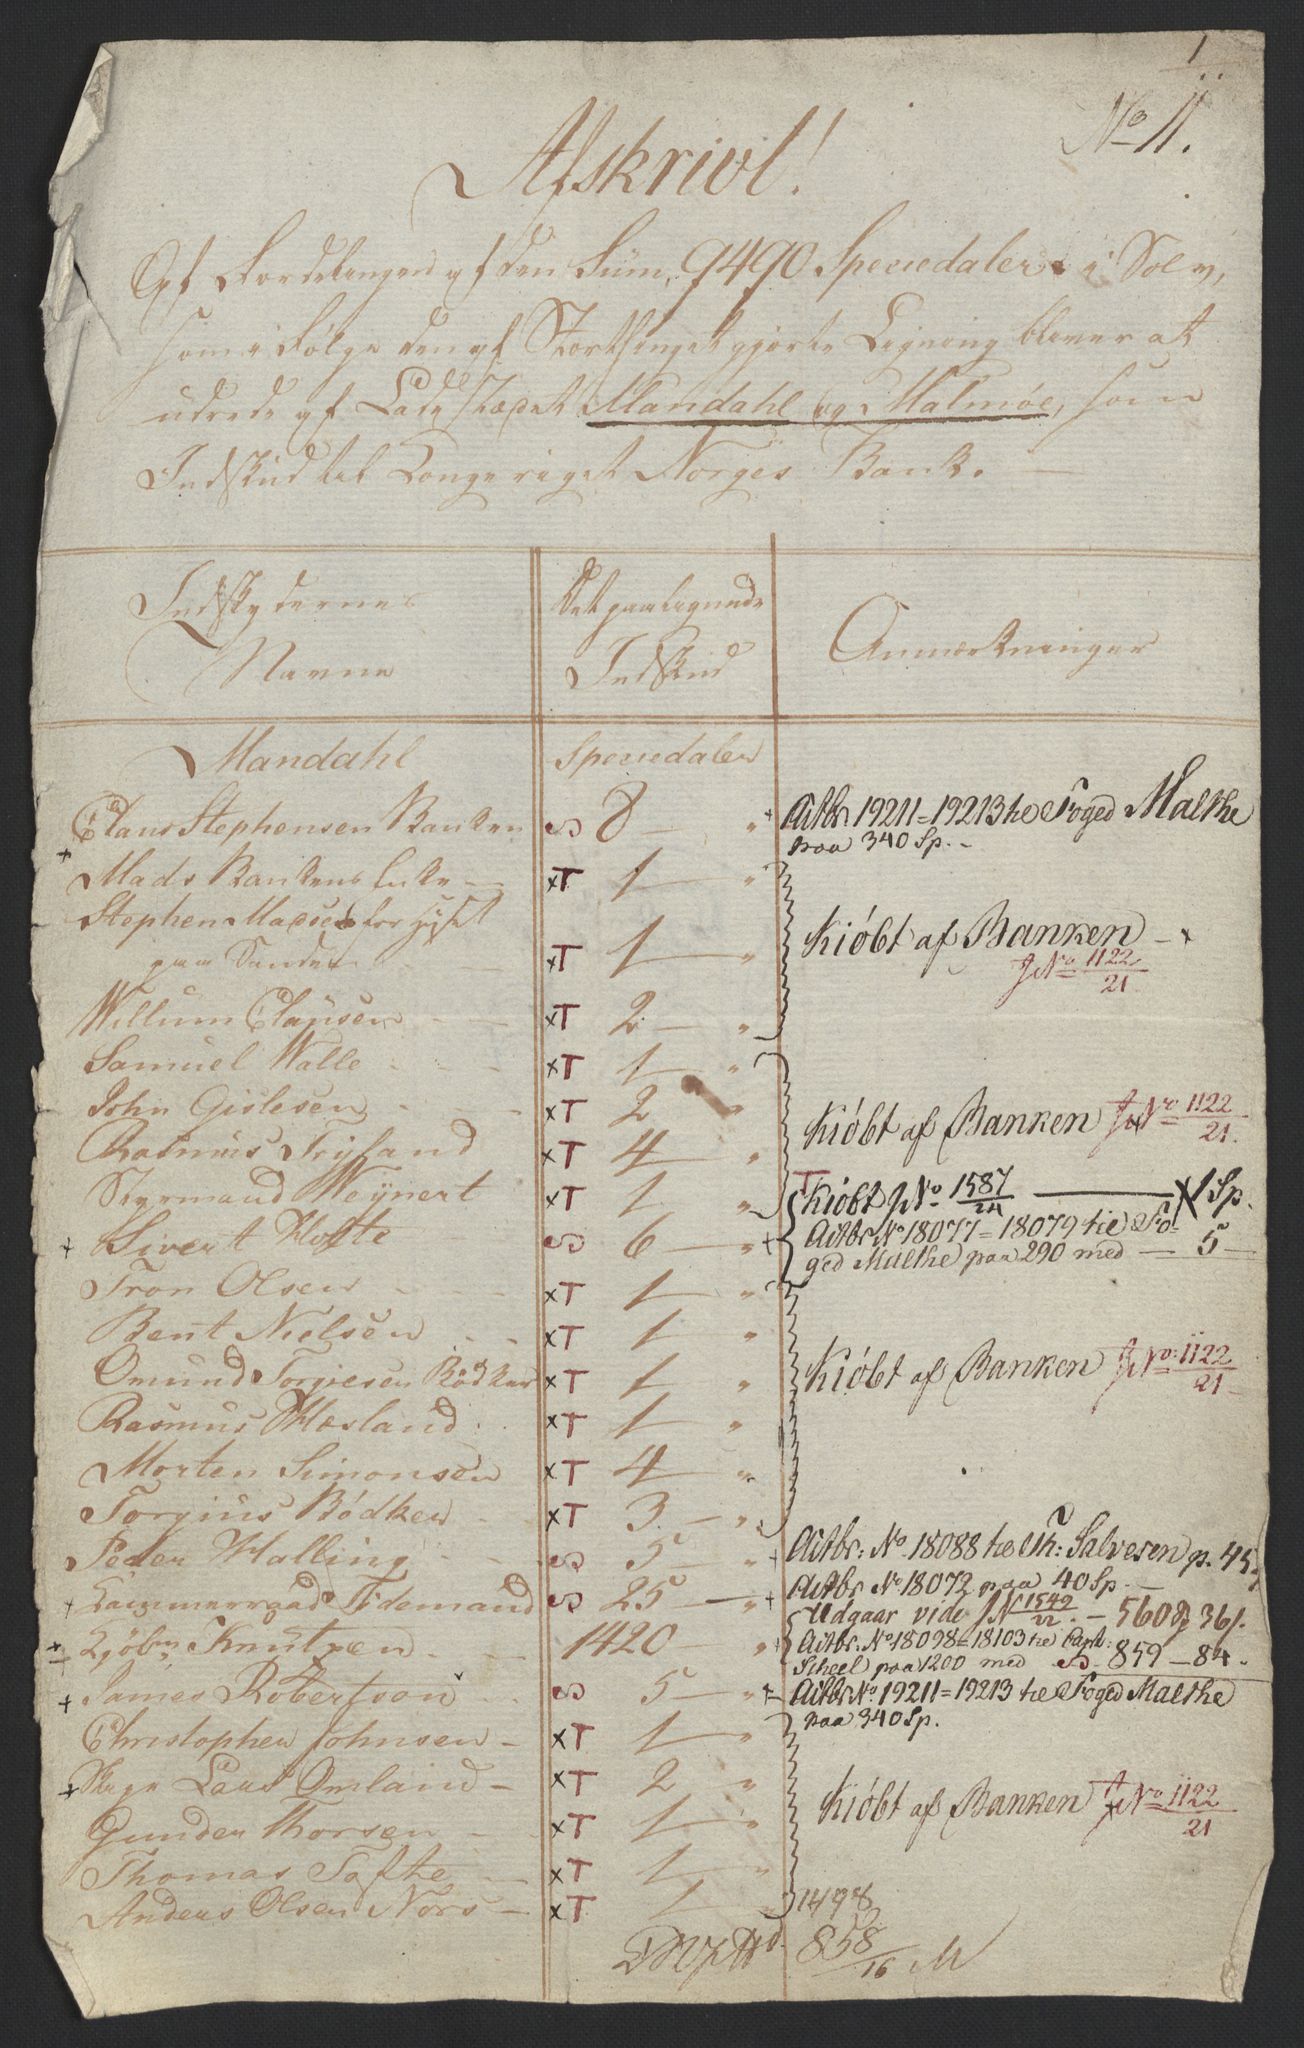 1
No 11.
Afskrivt!
Af Fordelingen af den Süm, 9490 Speciedaler i Sølv,
som i Følge den af Storthinget gjorte Ligning bliver at
udrede af Ladestædet Mandahl og Malmøe, som
Indskud til Kongeriget Norges Bank. —
Indskydernes Navne | Det paalignede Indskud | Anmærkninger
Mandahl | Speciedaler
Claus Stephensen Banken | S 8 — " | + Actbr 19211=19213 til Foged Malthe paa 340 Sp. -
+ Mads Bankens Enke — | xT 1 — "
Stephen Madsen for
paa Sanden | xT 1 — " | Kiöbt af Banken — x J No 1122/21
Willum Clausen — | xT 2 — "
Samuel Walle | xT 1 — "
John Gislesen | xT 2 " | Kiöbt af Banken J No 1122/21.
Rasmus Tryland | xT 4 — "
Styrmand Weynert | xT 1 — " | T Kiöbt J No 1587/24 — x 1 Sp.
+ Sivert Holte | S 6 — " | + Actbr No 18077=18079 til Fo=
ged Malthe paa 290 med — 5 —
Tron Olsen | xT 1 — "
Bent Nielsen | xT 1 — "
Omund Torgiesen Bödker | xT 1 — " | Kiöbt af Banken J No 1122/21
Rasmus Mæsland | xT 1 — "
Morten Simonsen | xT 4 — "
Torgius Bödker | xT 3 — "
Peder Halling | S 5 — " | + Actbr: No 18088 til Th: Salvesen p. 45
+ Kammerraad Tidemand | S 25 — | + Actbr No 18072 paa 40 Sp. —
Kjöbm. Knutzen | 1420 — " | Udgaar vide J No 1549/22. — 560 36/.
Actbr. No 18098=18103 til Capt:
Scheel paa 1200 med S 859 — 84.
+ James Robertson | S 5 — " | + Actbr No 19211=19213 til Foged Malthe
paa 340 Sp.
Christopher Johnsen — | xT 1 — "
+ Lars Omland — | xT 2 — " | Kiöbt af Banken J No 1122/21
Gunder Thorsen — | xT 1 — "
Thomas Tofte — | xT 1 — "
Anders Olsen Nörs — | xT 1 — " | 1498
858/16 M